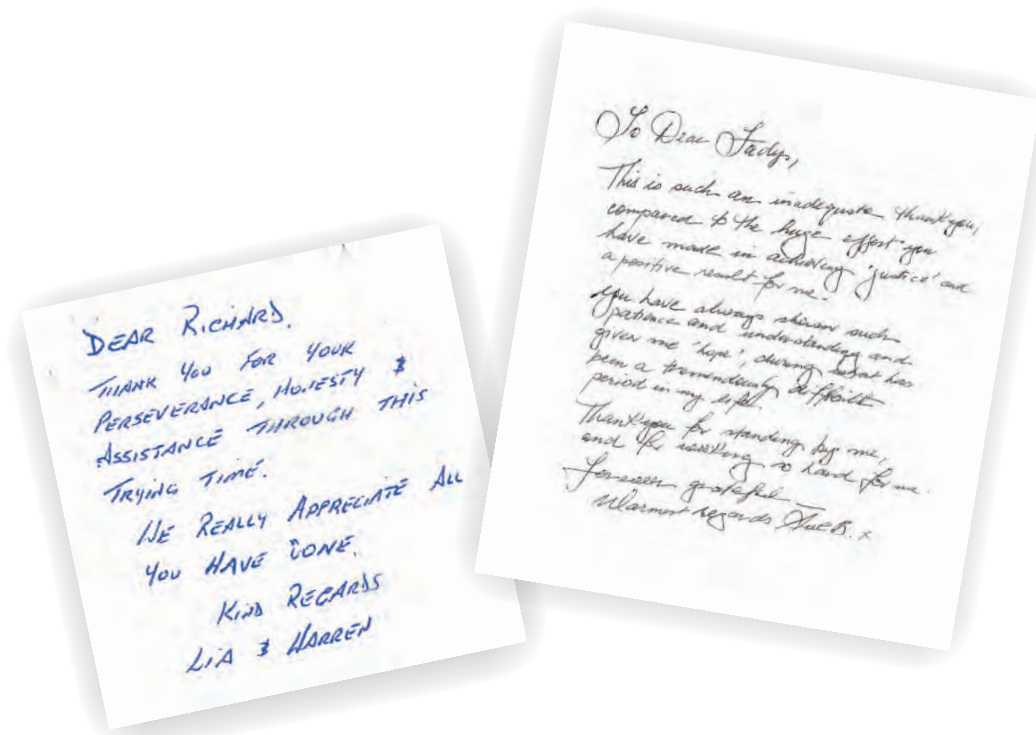 DEAR RICHARD.
THANK YOU FOR YOUR
PERSEVERANCE, HONESTY &
ASSISTANCE THROUGH THIS
TRYING TIME.
WE REALLY APPRECIATE ALL
YOU HAVE DONE.
KIND REGARDS
LIA & WARREN
To Dear Fadys,
This is such an inadequate thankyou,
compared to the huge effort you
have made in achieving 'justice' and
a positive result for me.
You have always shown such
patience and understanding and
given me 'hope', during what has
been a tremendously difficult
period in my life.
Thankyou for standing by me,
and for working so hard for me.
Forever grateful —
Warmest regards Sue B. x